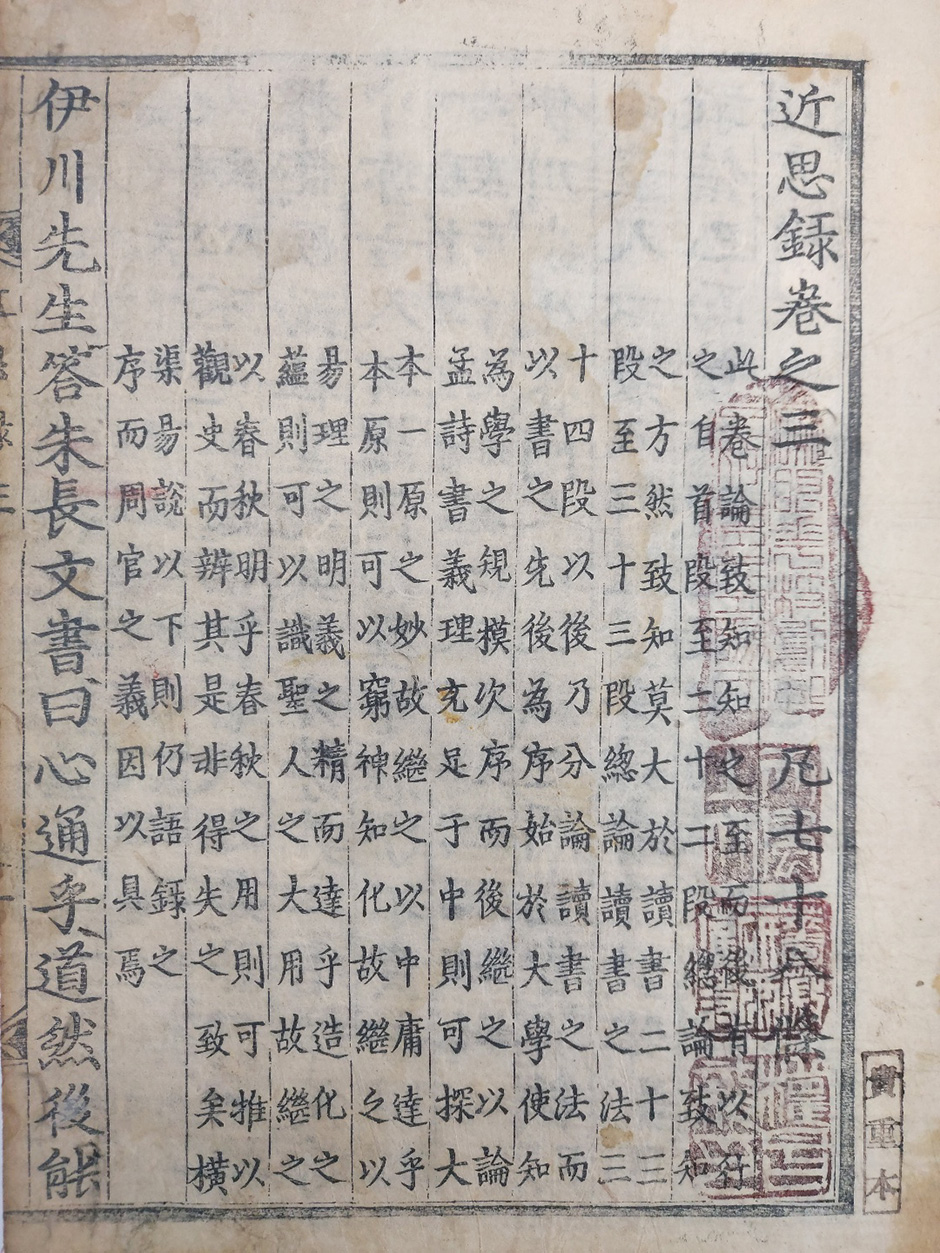 近思録卷之三 凡七十八條
此卷論致知知之至而後有以行
之自首段至二十二段總論致知
之方然致知莫大於讀書二十三
段至三十三段總論讀書之法三
十四段以後乃分論讀書之法而
以書之先後為序始於大學使知
為學之規摸次序而後繼之以論
孟詩書義理充足于中則可探大
本一原之妙故繼之以中庸達乎
本原則可以窮神知化故繼之以
易理之明義之精而達乎造化之
蘊則可以識聖人之大用故繼之
以春秋明乎春秋之用則可推以
觀史而辨其是非得失之致矣橫
渠易說以下則仍語録之
序而周官之義因以具焉
伊川先生答朱長文書曰心通乎道然後能
貴重本